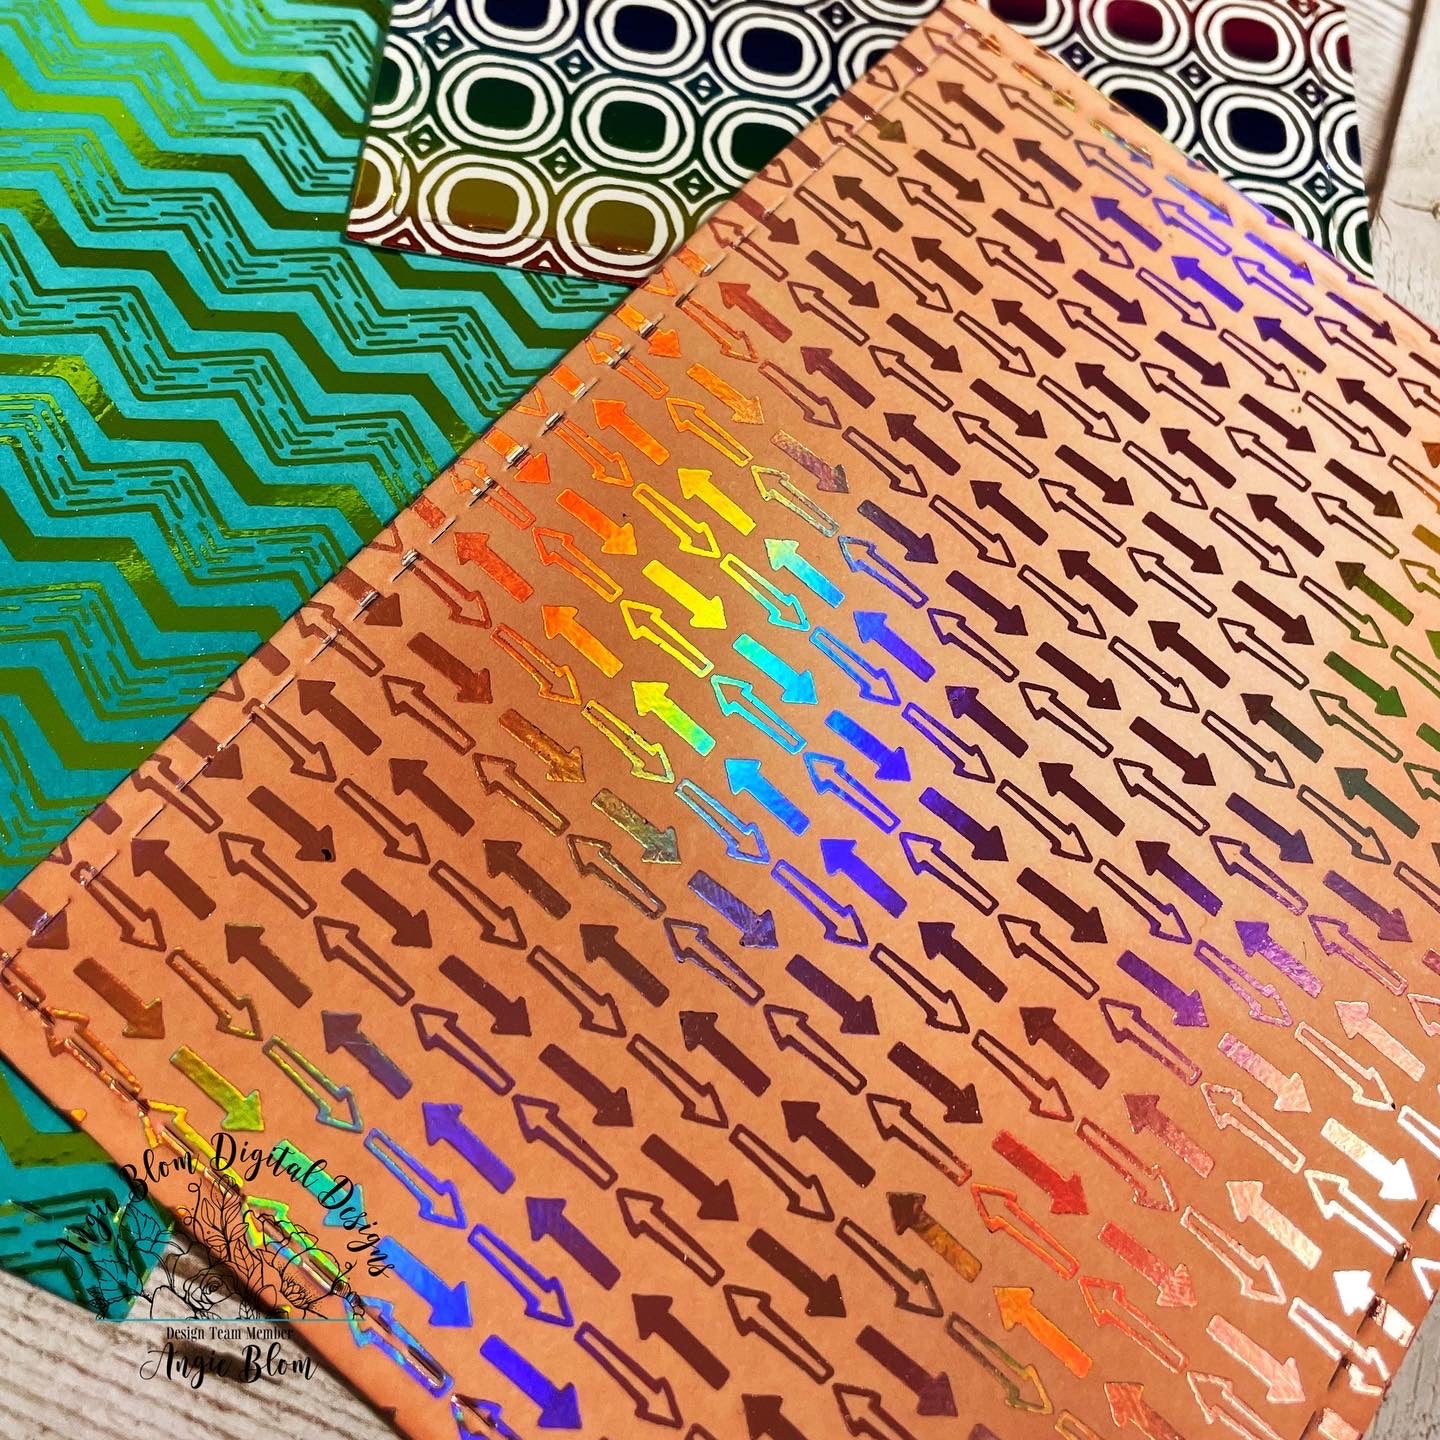 Angie Blom Digital Designs
Design Team Member
Angie Blom